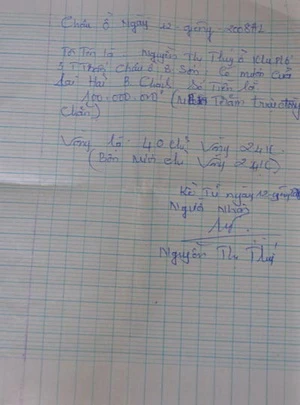 Châu ổ Ngày 12 giêng 2008 AL
Tôi Tên là Nguyễn Thị Thuý ở Khu Phố
5 T Trấn Châu ổ B Sơn Có mượn của
Hai B Châu Số tiền là
100.000.000đ (Một Trăm triệu đồng
chẵn)
Vàng là 40 chỉ Vàng 24K
(Bốn Mươi chỉ Vàng 24K)
Kể Từ ngày 12 giêng
Người Nhận
Nguyễn Thị Thuý